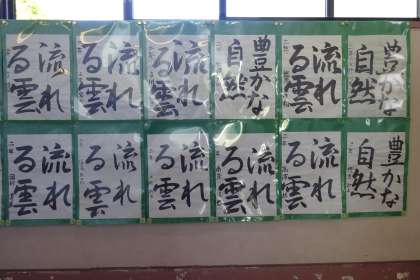 豊かな
自然
流れ
る雲
豊かな
自然
流れ
る雲
流れ
る雲
流れ
る雲
豊かな
自然
流れ
る雲
流れ
る雲
流れ
る雲
流れ
る雲
流れ
る雲